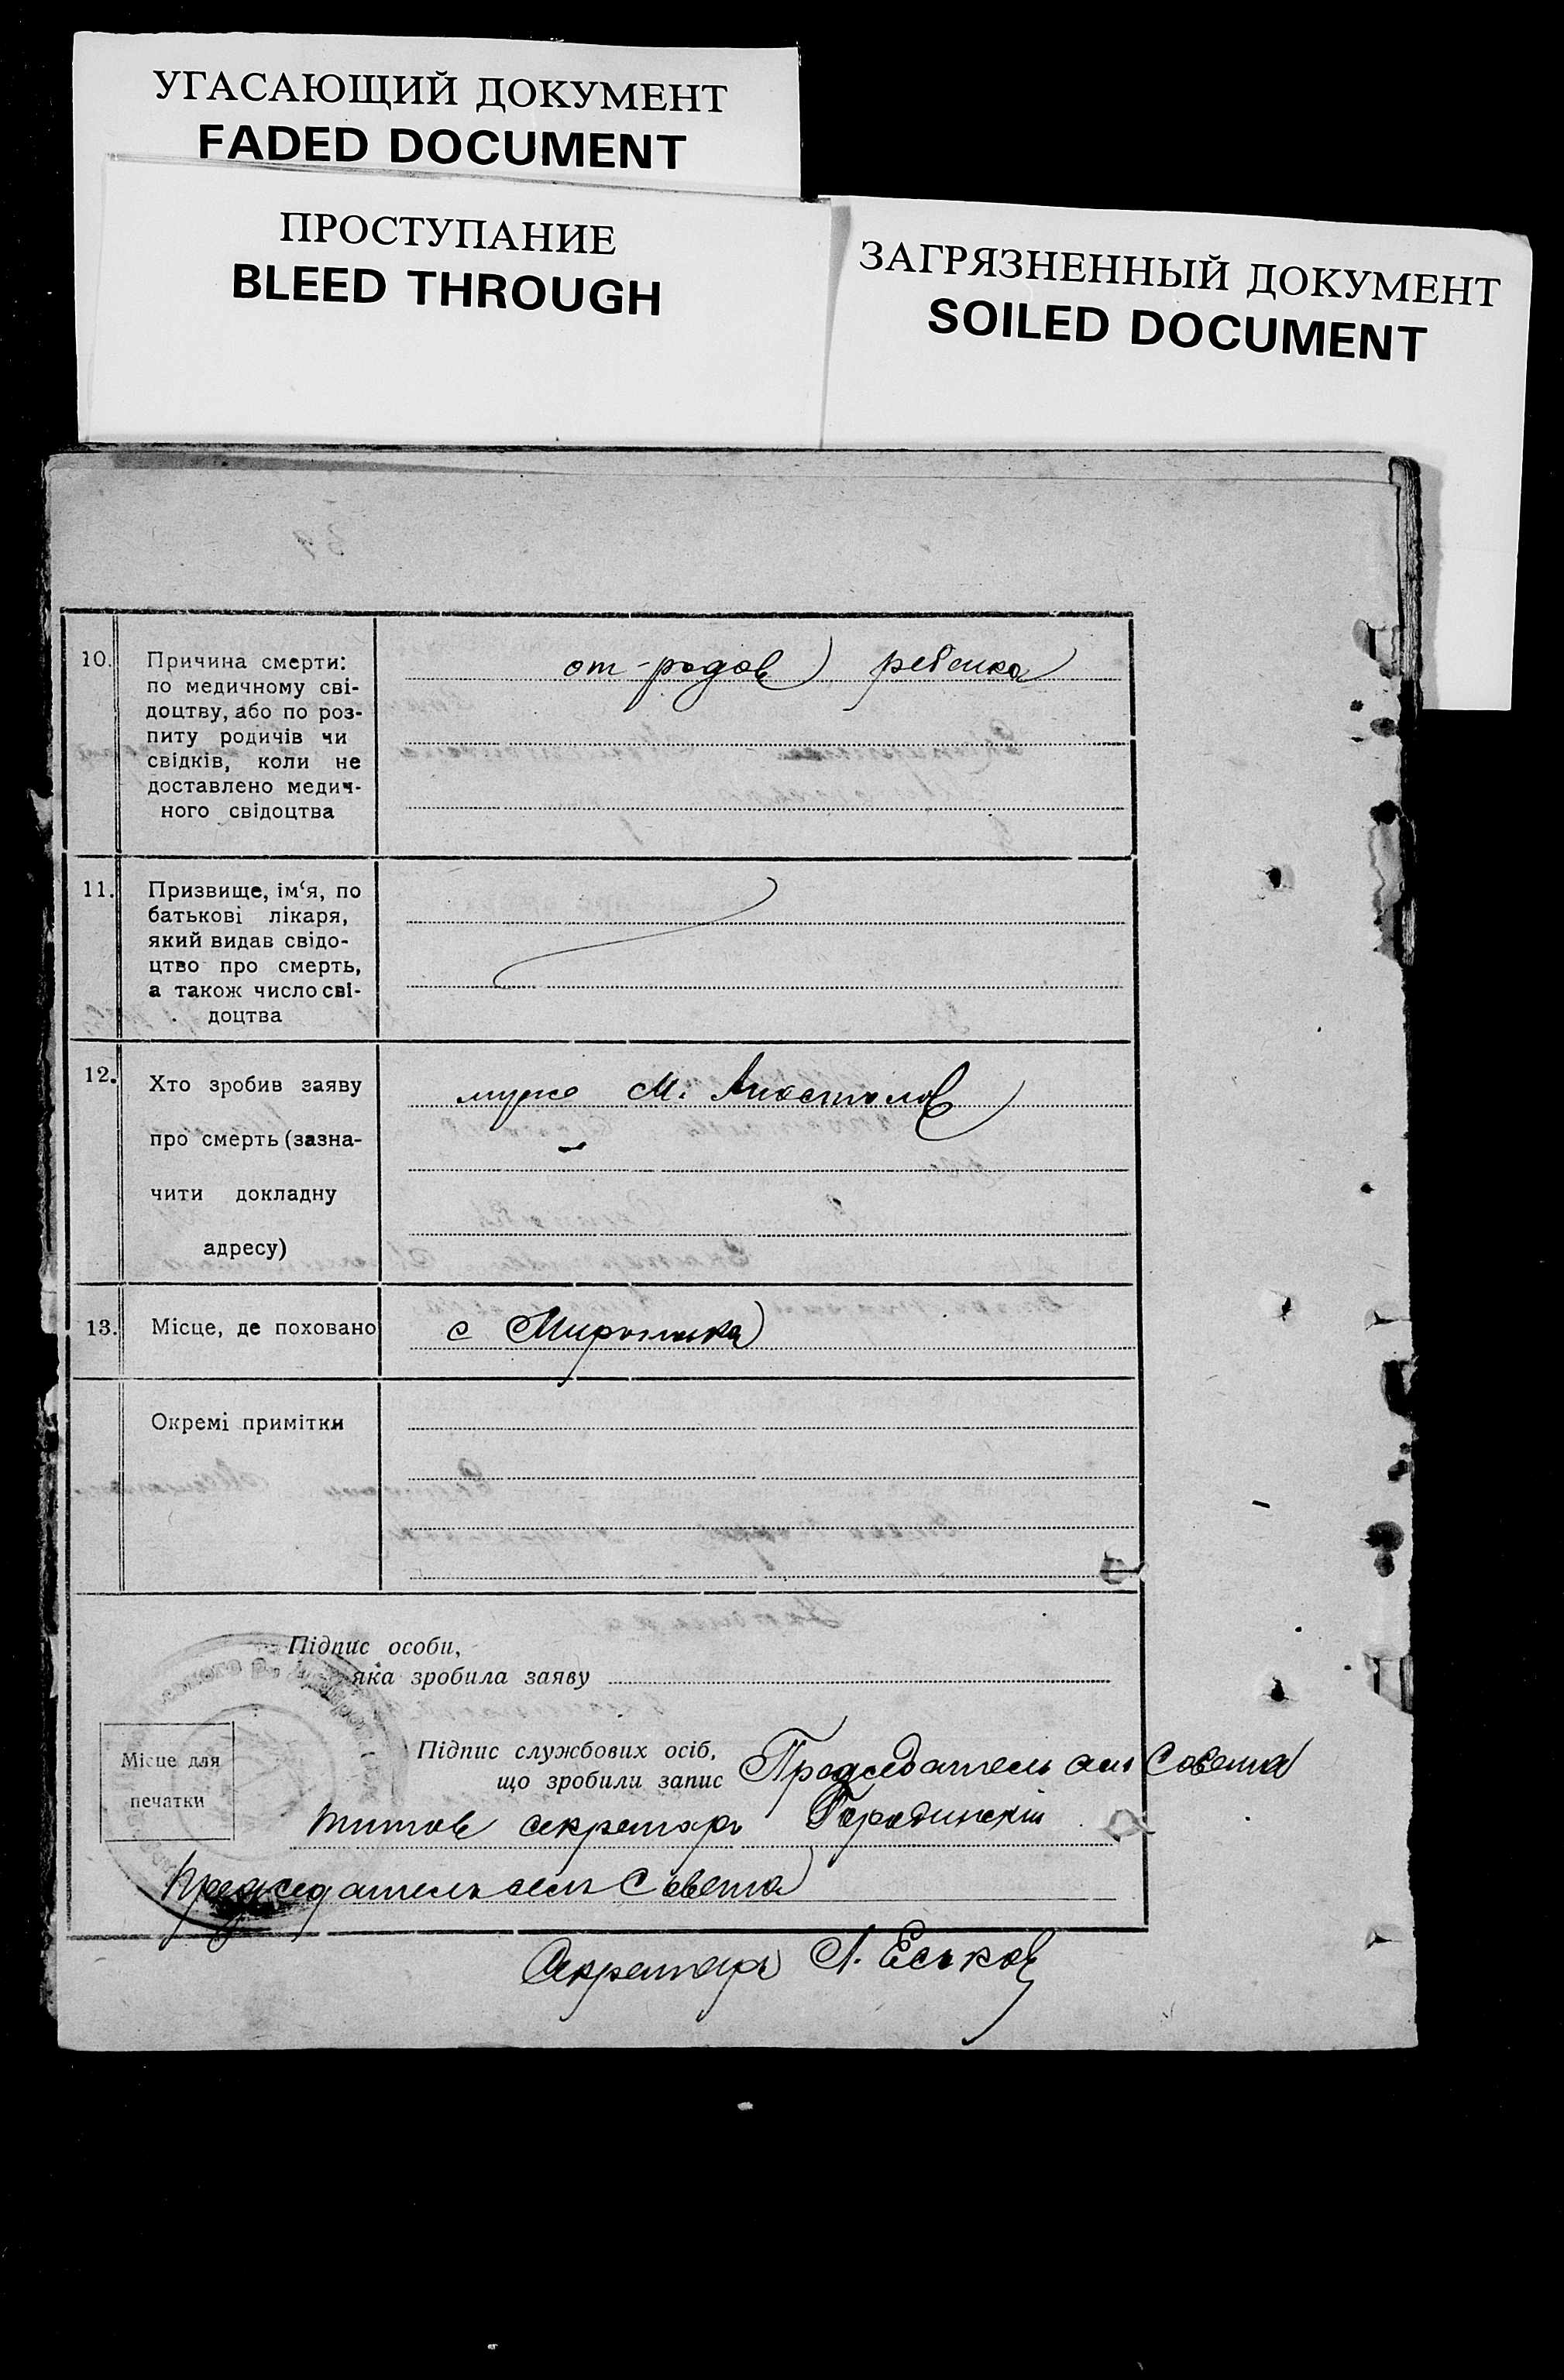 УГАСАЮЩИЙ ДОКУМЕНТ
FADED DOCUMENT
ПРОСТУПАНИЕ
BLEED THROUGH
ЗАГРЯЗНЕННЫЙ ДОКУМЕНТ
SOILED DOCUMENT
10.
Причина смерти:
по медичному сві-
доцтву, або по роз-
питу родичів чи
свідків, коли не
доставлено медич-
ного свідоцтва
от-родов ребенка
11.
Призвище, ім‘я, по
батькові лікаря,
який видав свідо-
цтво про смерть,
а також число сві-
доцтва
12.
Хто зробив заяву
про смерть (зазна-
чити докладну
адресу)
муже М. Апостолов
13.
Місце, де поховано
с
Окремі примітки
Підпис особи,
яка зробила заяву
Підпис службових осіб,
що зробили запис
Председатель сель Совета
Титов секретарь
Місце для
печатки
Председатель сель Совета
Секретарь Л. Еськов